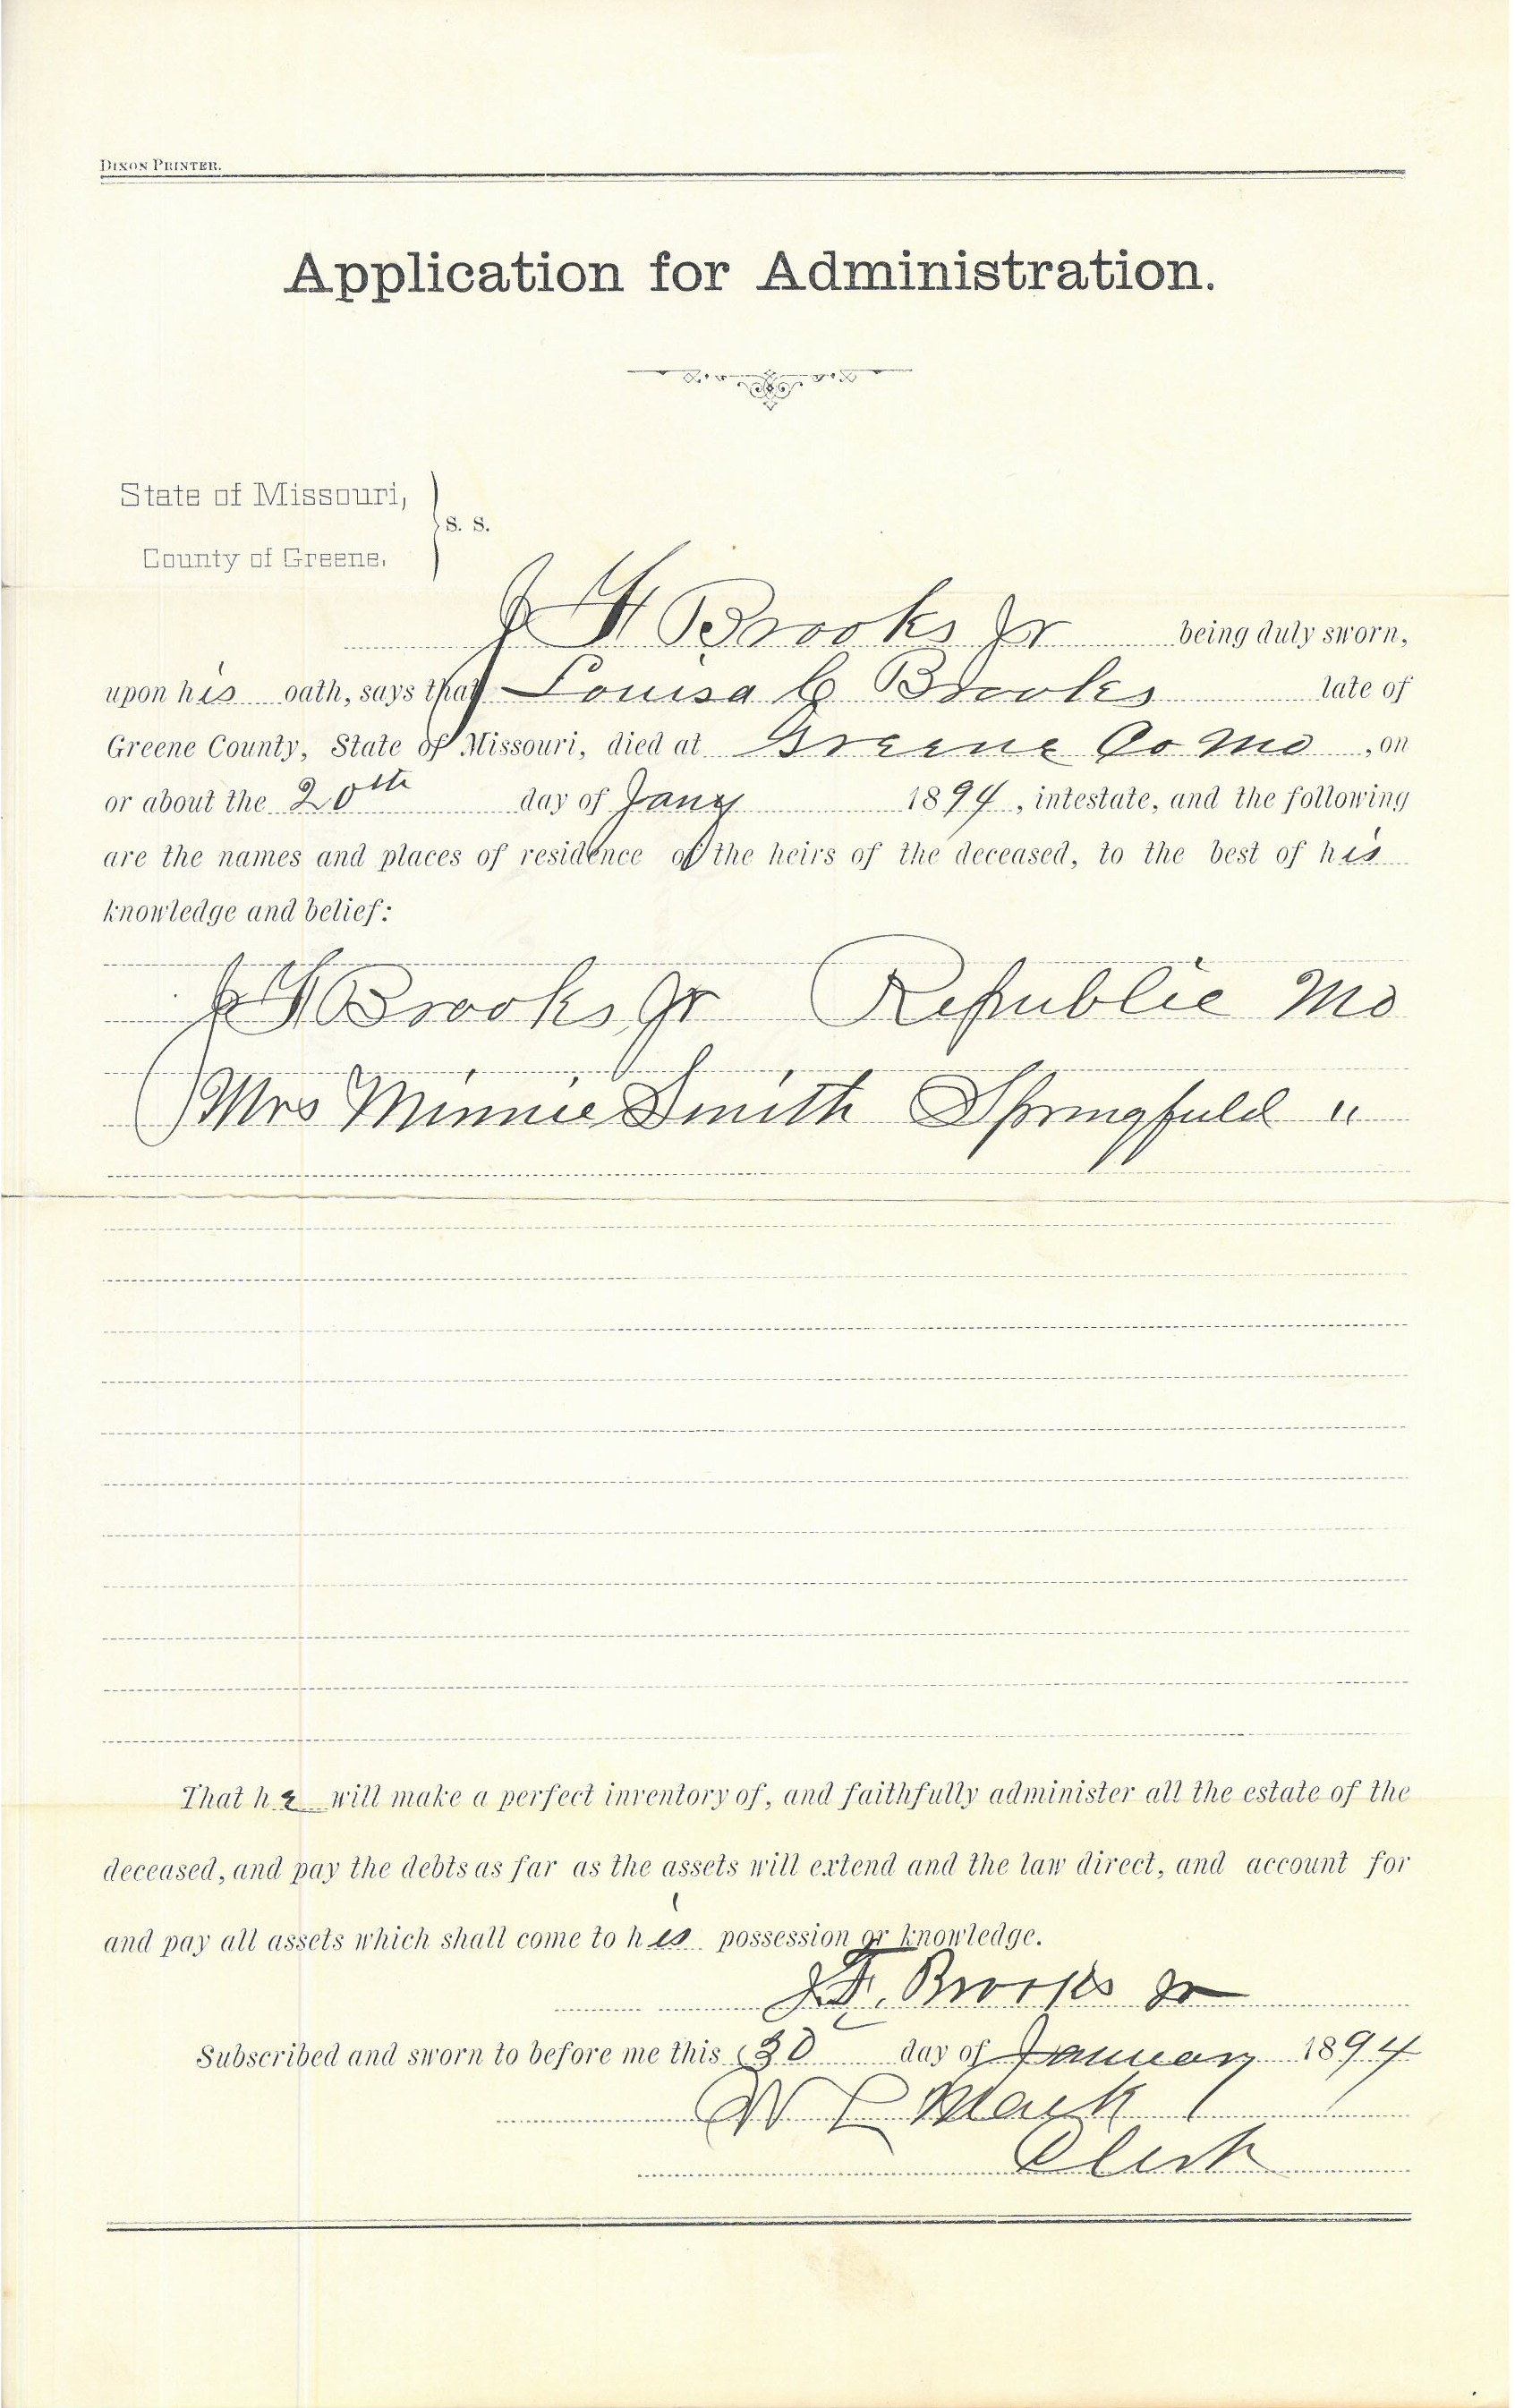 DIXON PRINTER.
Application for Administration.
State of Missouri,
S. S.
County of Greene,
J F Brooks Jr being duly sworn,
upon his oath, says that Louisa C Brooks late of
Greene County, State of Missouri, died at Greene Co Mo , on
or about the 20th day of Jany 1894, intestate, and the following
are the names and places of residence of the heirs of the deceased, to the best of his
knowledge and belief:
J F Brooks Jr Republic Mo
Mrs Minnie Smith Springfield "
That he will make a perfect inventory of, and faithfully administer all the estate of the
deceased, and pay the debts as far as the assets will extend and the law direct, and account for
and pay all assets which shall come to his possession or knowledge.
J. F. Brooks Jr
Subscribed and sworn to before me this 30 day of January 1894
W L Mack
Clerk